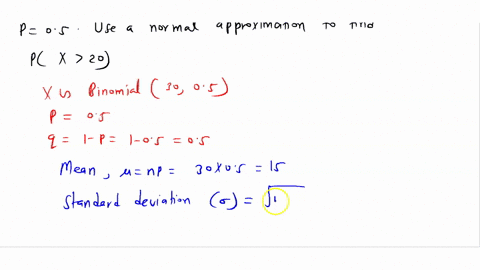 P= 0.5. Use a normal approximation to find
P( X > 20)
X ~ Binomial ( 30, 0.5)
P = 0.5
q = 1-P = 1-0.5 = 0.5
Mean, μ = np = 30 x 0.5 = 15
Standard deviation (σ) = √